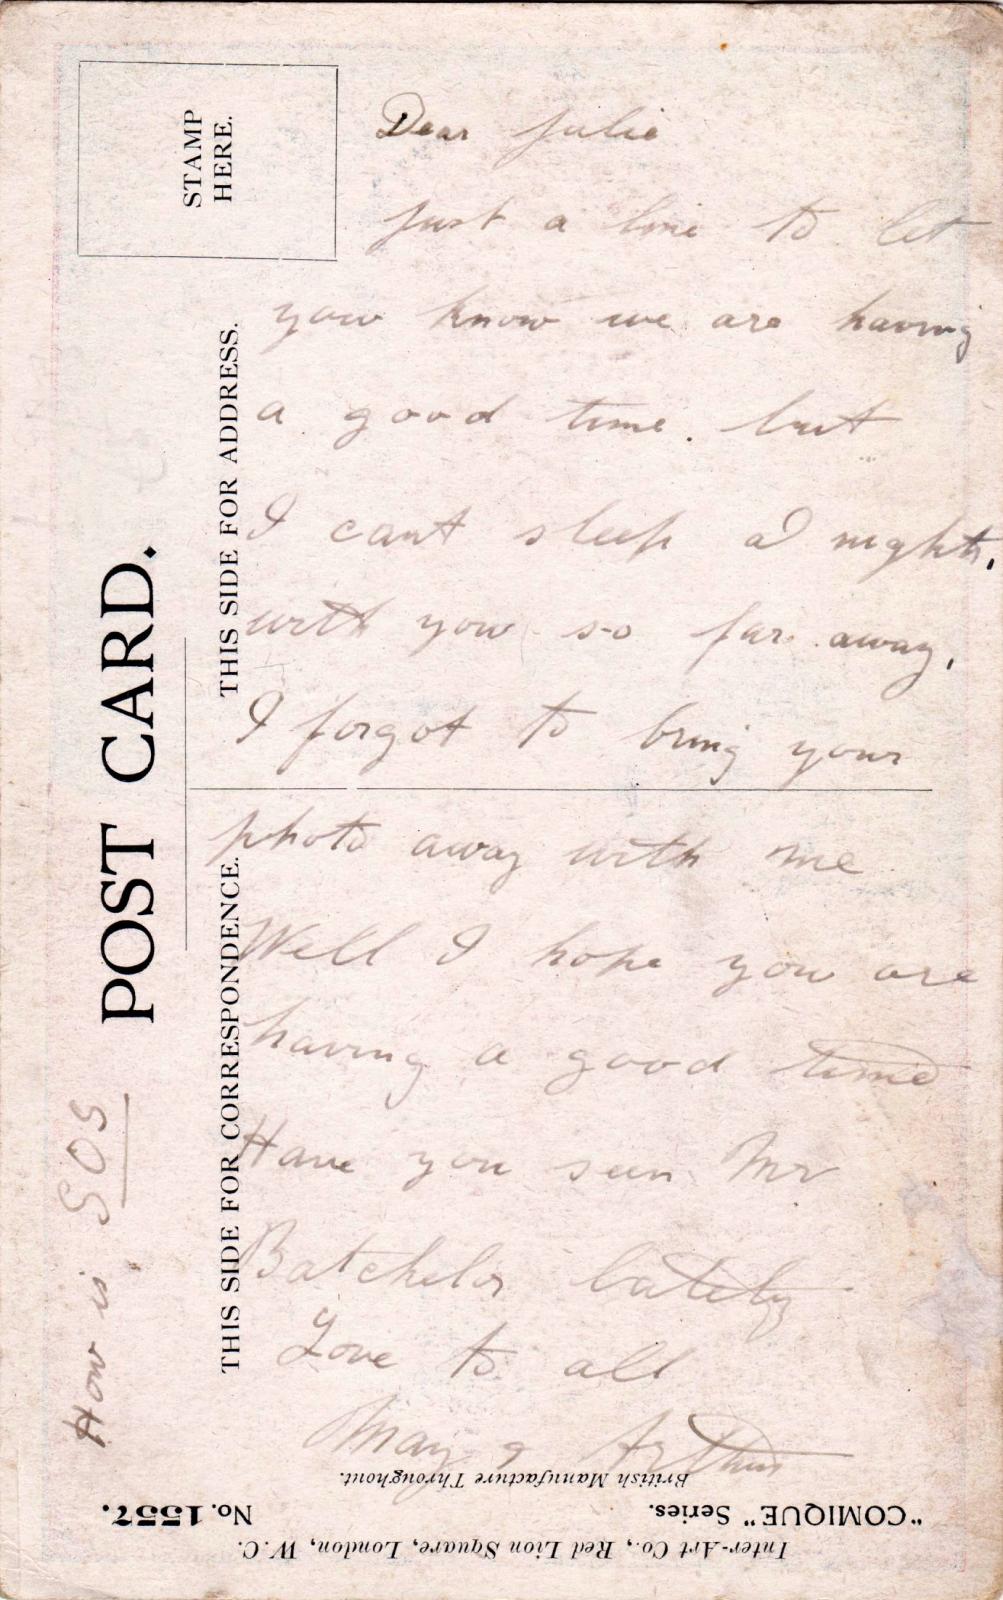 STAMP
HERE.
Dear Julie
just a line to let
you know we are having
a good time. but
I cant sleep a nights,
with you so far away,
I forgot to bring your
photo away with me
Well I hope you are
having a good time
Have you seen Mr
Batchelor lately
Love to all
May & Arthur
How is SOS
POST CARD.
THIS SIDE FOR ADDRESS.
THIS SIDE FOR CORRESPONDENCE.
British Manufacture Throughout.
"COMIQUE" Series.
No. 1557.
Inter-Art Co., Red Lion Square, London, W.C.